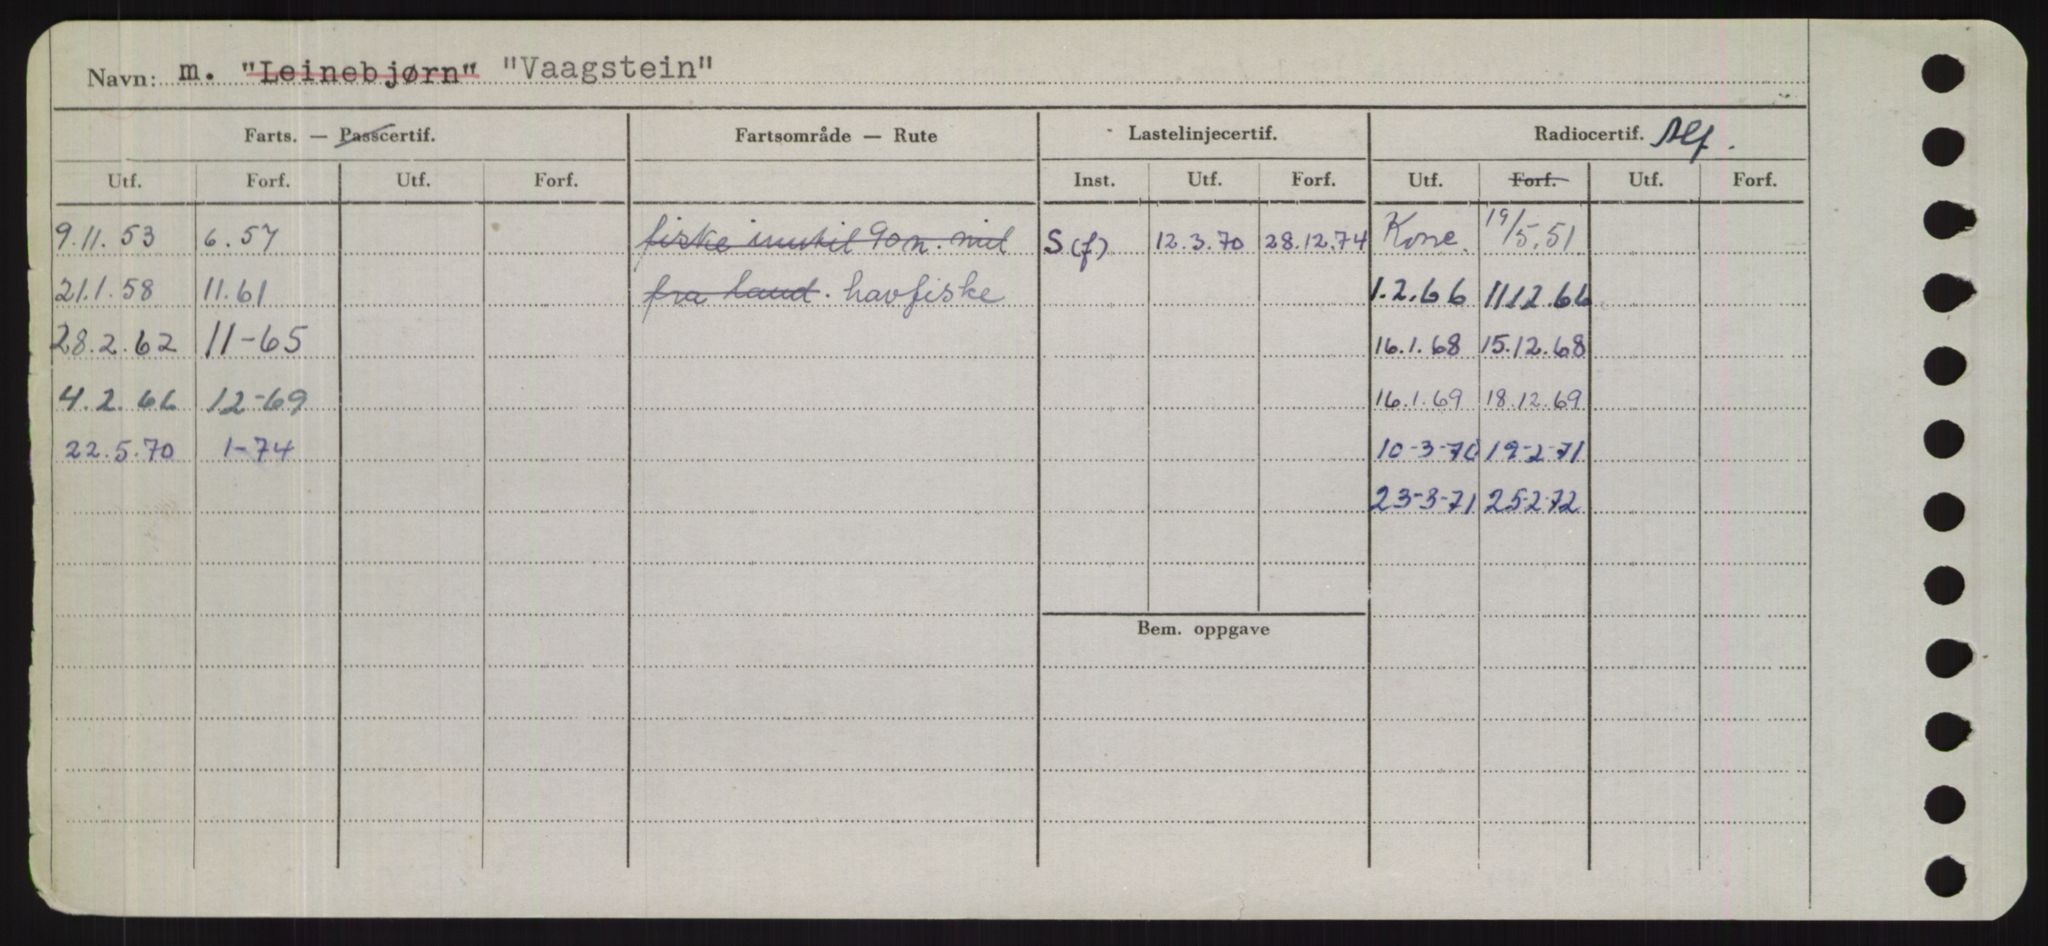 Navn: m. "Leinebjørn" "Vaagstein"
Farts. — Passcertif. Fartsområde — Rute Lastelinjecertif. Radiocertif. Alf.
Utf. Forf. Utf. Forf. Inst. Utf. Forf. Utf. Forf. Utf. Forf.
9.11.53 6.57 fiske inntil 90 n. mil S(f) 12.3.70 28.12.74 Konse. 19/5.51
21.1.58 11.61 fra land. havfiske 1.2.66 1112.66
28.2.62 11-65 16.1.68 15.12.68
4.2.66 12-69 16.1.69 18.12.69
22.5.70 1-74 10-3-70 19-2-71
23-3-71 25-2-72
Bem. oppgave